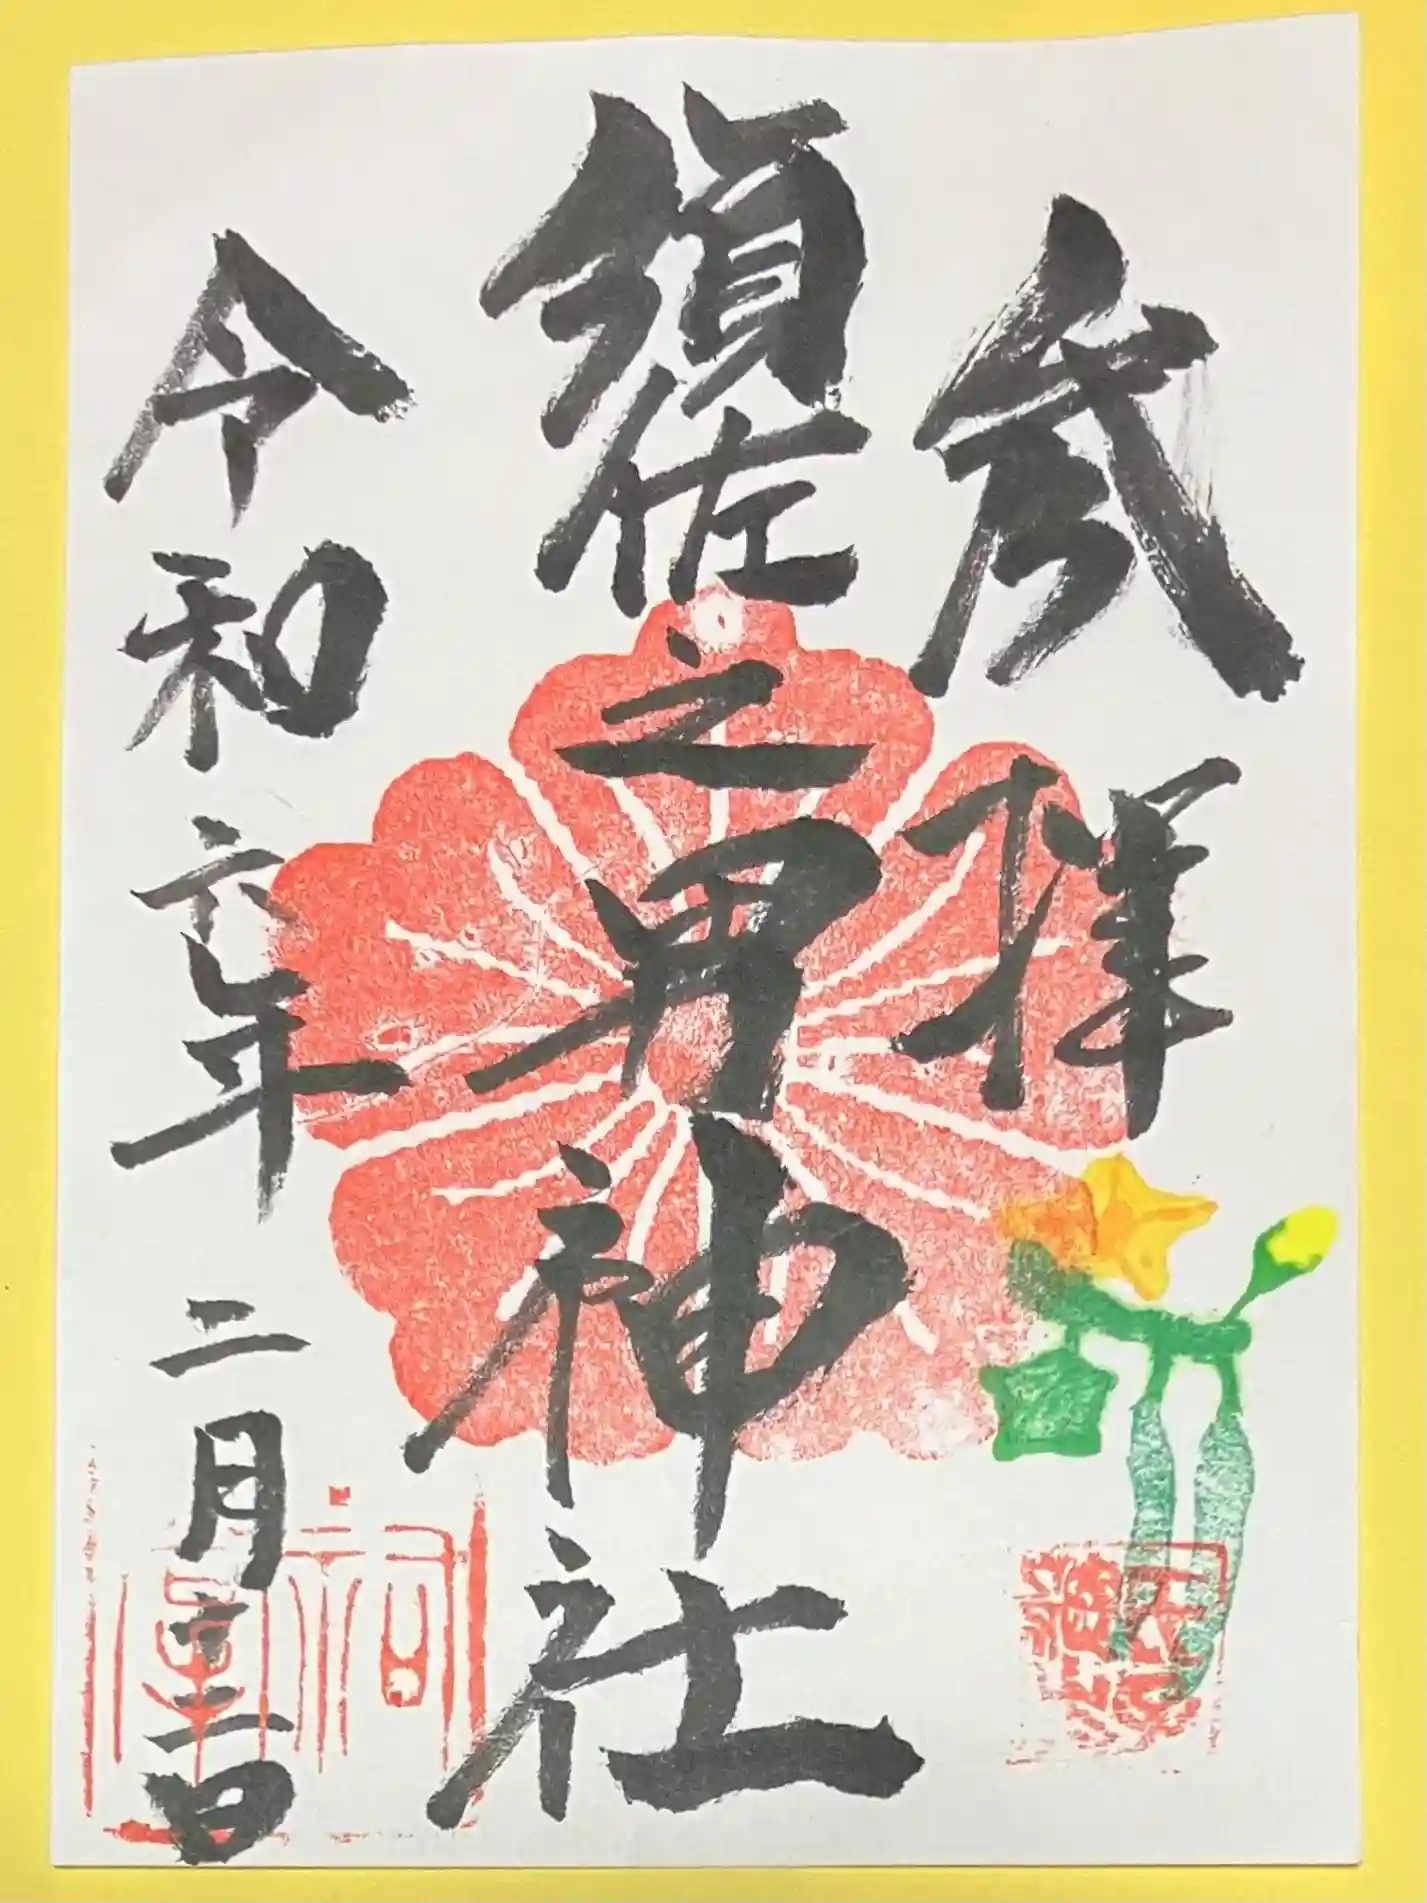 参拝
須佐之男神社
令和六年二月二十二日